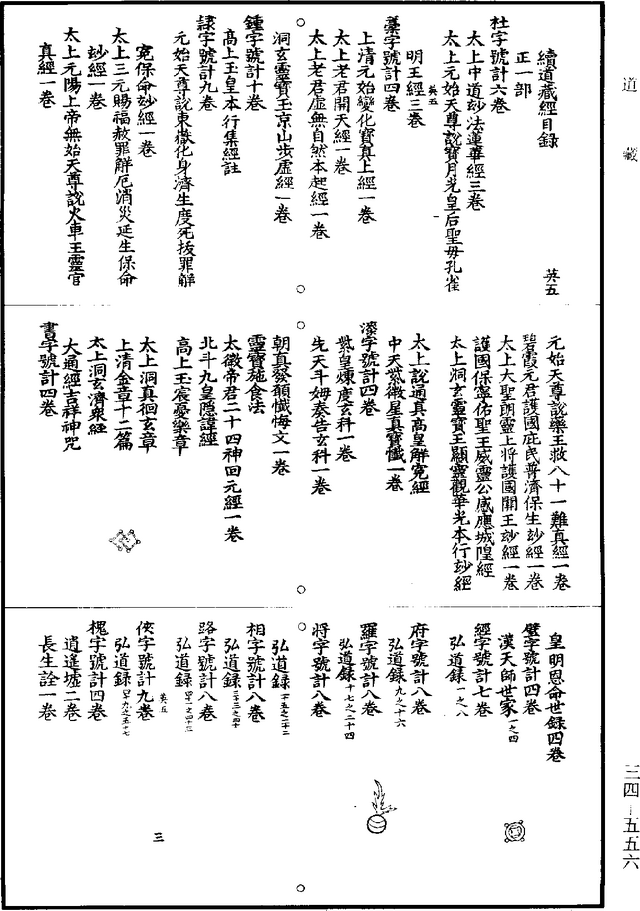 道藏
續道藏經目錄
英五
正一部
杜字號計六卷
太上中道玅法蓮華經三卷
太上元始天尊說寶月光皇后聖母孔雀
明王經三卷
英五
藁字號計四卷
上清元始變化寶真上經一卷
太上老君開天經一卷
太上老君虛無自然本起經一卷
洞玄靈寶玉京山步虛經一卷
鍾字號計十卷
高上玉皇本行集經註
隸字號計九卷
元始天尊說東嶽化身濟生度死拔罪解
冤保命玅經一卷
太上三元賜福赦罪解厄消災延生保命
玅經一卷
太上元陽上帝無始天尊說火車王靈官
真經一卷
元始天尊說藥王救八十一難真經一卷
碧霞元君護國庇民普濟保生玅經一卷
太上大聖朗靈上將護國關王玅經一卷
護國保寧佑聖王威靈公感應城隍經
太上洞玄靈寶五顯靈觀華光本行玅經
太上說通真高皇解冤經
中天紫微星真寶懺一卷
漆字號計四卷
紫皇煉度玄科一卷
先天斗姆奏告玄科一卷
朝真發願懺悔文一卷
靈寶施食法
太微帝君二十四神回元經一卷
北斗九皇隱諱經
高上玉宸憂樂章
太上洞真徊玄章
上清金章十二篇
太上洞玄濟衆經
大通經吉祥神咒
書字號計四卷
皇明恩命世錄四卷
壁字號計四卷
漢天師世家一之四
經字號計七卷
弘道錄一之八
府字號計八卷
弘道錄九之十六
羅字號計八卷
弘道錄十七之二十四
將字號計八卷
弘道錄二十五之三十二
相字號計八卷
弘道錄三十三之四十
路字號計八卷
弘道錄四十一之四十八
俠字號計九卷
英五
弘道錄四十九之五十七
槐字號計四卷
逍遙墟二卷
長生詮一卷
三
三四—五五六